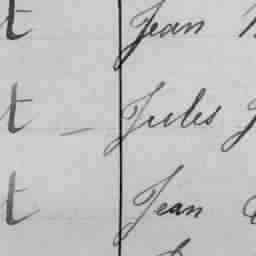 t Jean
t - Jules J
t Jean